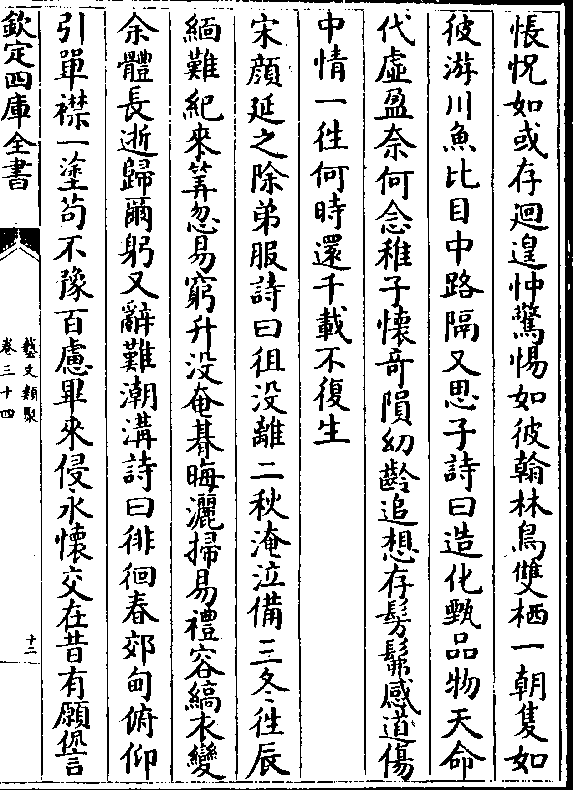 悵怳如或存迴遑忡驚惕如彼翰林鳥雙栖一朝隻如
彼游川魚比目中路隔又思子詩曰造化甄品物天命
代虛盈奈何念稚子懷奇隕幼齡追想存髣髴感道傷
中情一徃何時還千載不復生
宋顔延之除弟服詩曰徂没離二秋淹泣備三冬徃辰
緬難紀來筭忽易窮升没奄朞晦灑掃易禮容縞衣變
余體長逝歸爾躬又辭難潮溝詩曰徘徊春郊甸俯仰
引單襟一塗苟不豫百慮畢來侵永懷交在昔有願愆言
欽定四庫全書
藝文類聚
卷三十四
十二